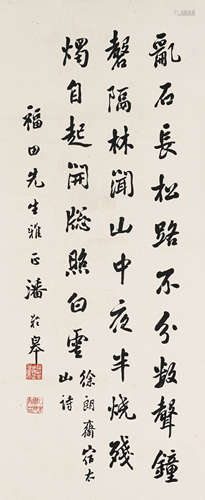 亂石長松路不分數聲鐘
磬隔林聞山中夜半燒殘
燭自起開窗照白雲
徐朗齋宿太
山詩
福田先生雅正 潘齡皋